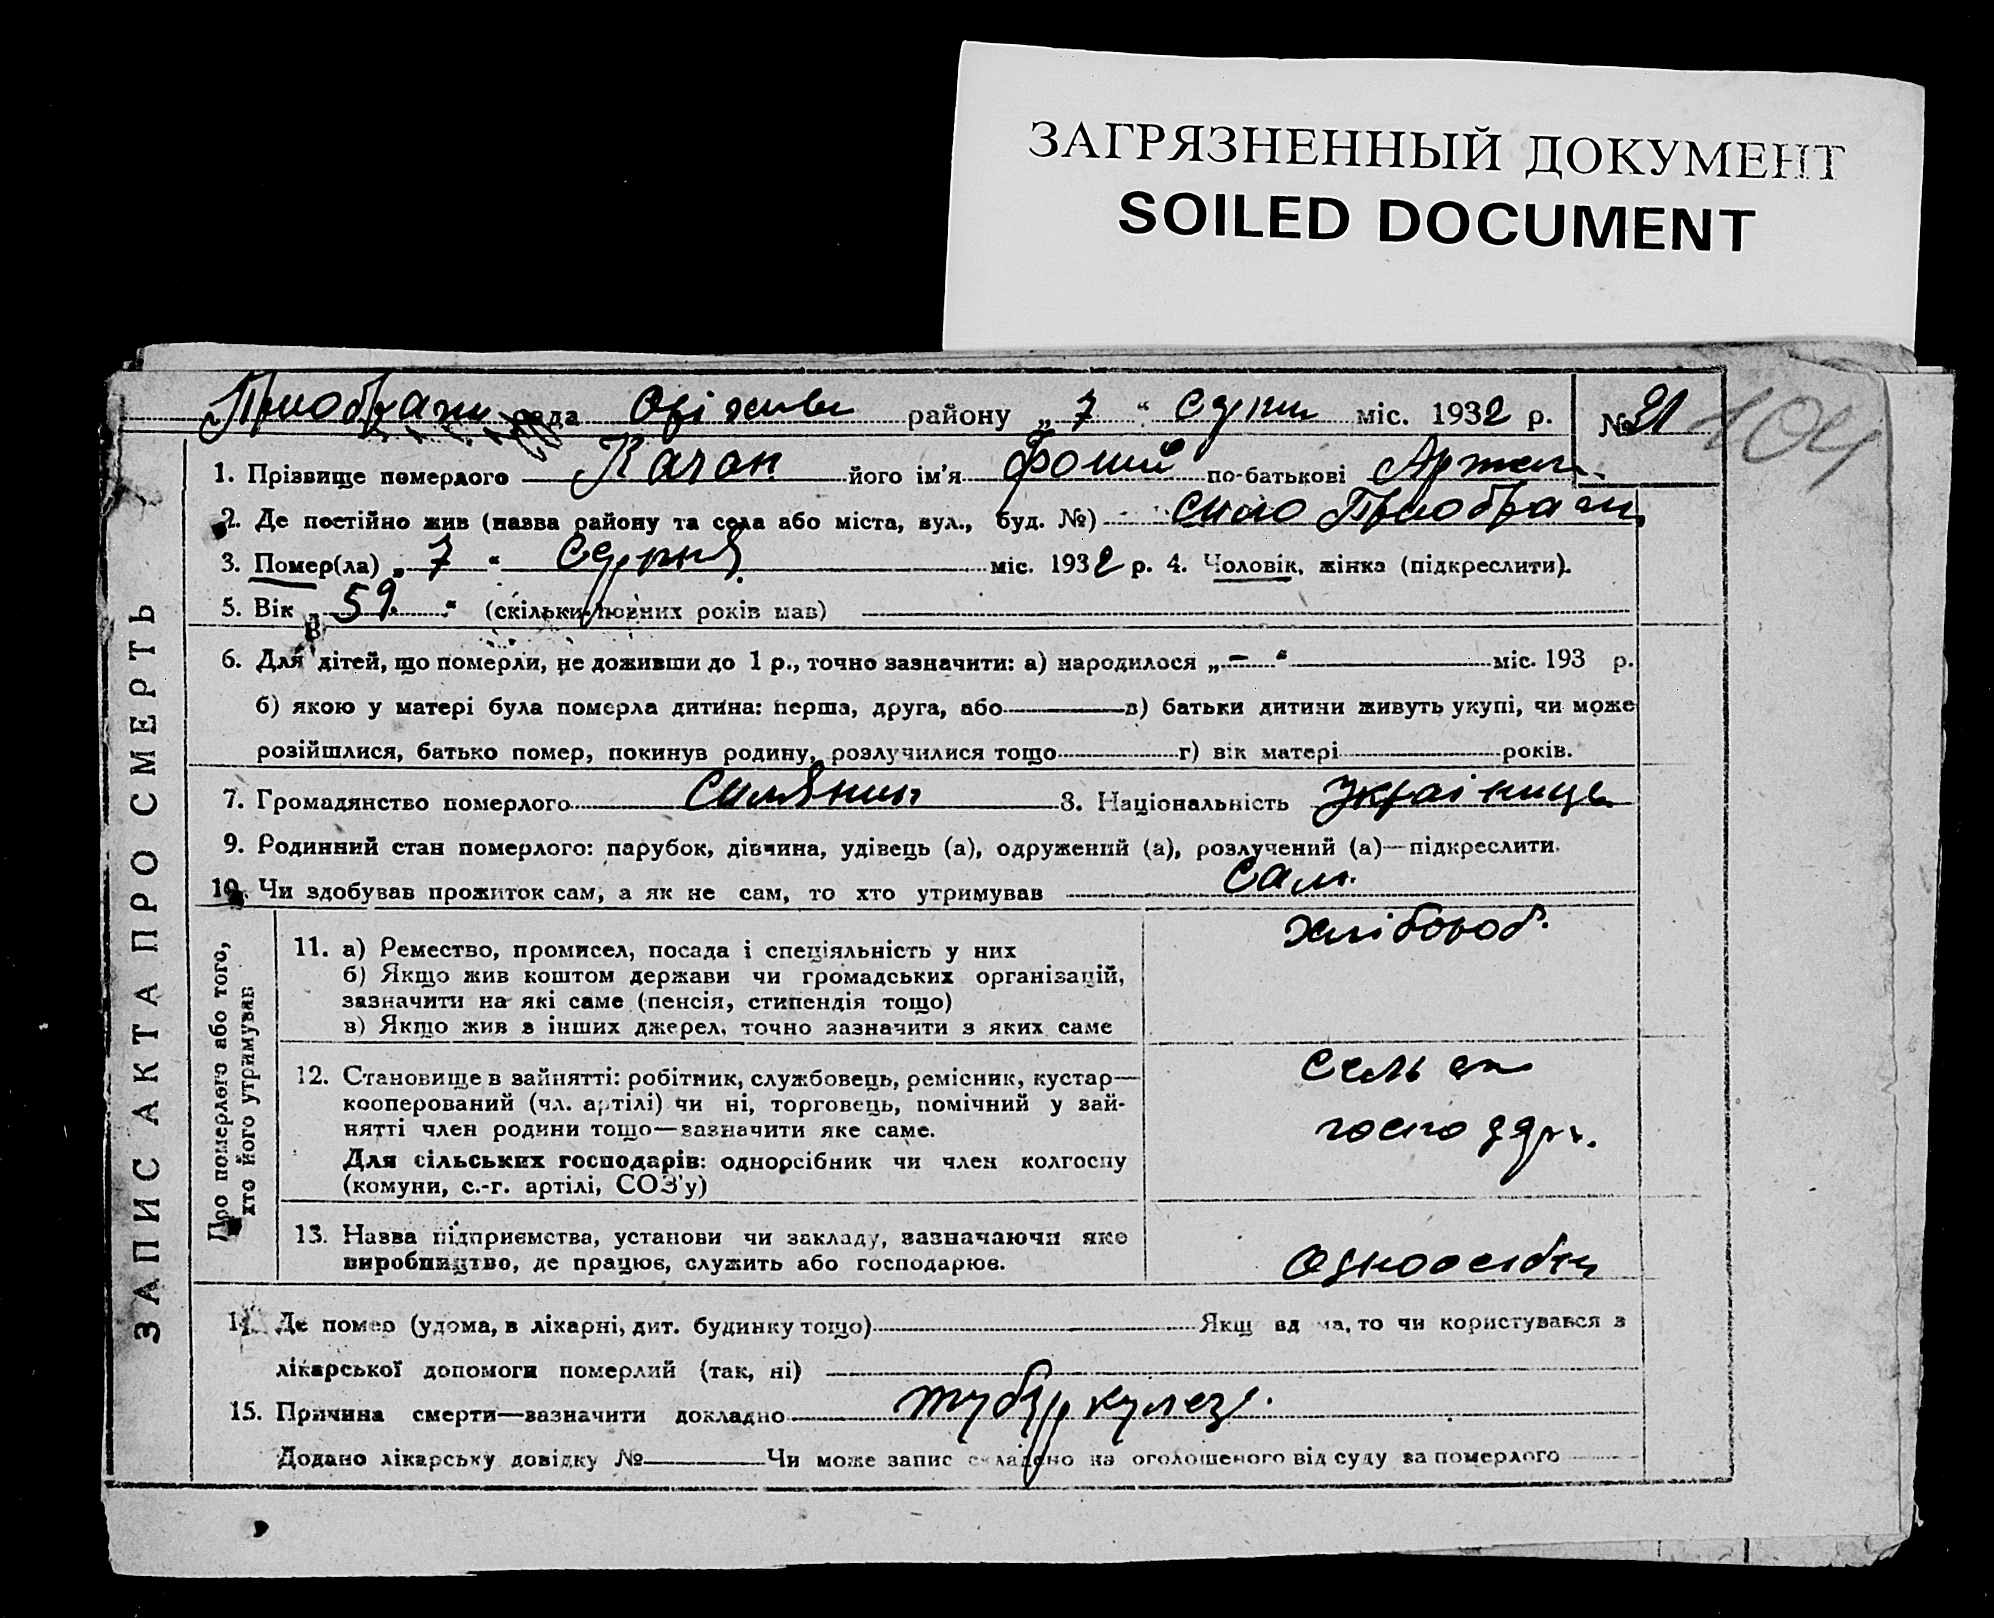 ЗАГРЯЗНЕННЫЙ ДОКУМЕНТ
SOILED DOCUMENT
рада району „ 7 “ міс. 1932 р. № 21 104
1. Прізвище померлого Качан його ім'я по-батькові
2. Де постійно жив (назва району та села або міста, вул., буд. №) село
3. Помер(ла) „ 7 “ Серпня міс. 1932 р. 4. Чоловік, жінка (підкреслити).
5. Вік „ 59 “ (скільки повних років мав)
6. Для дітей, що померли, не доживши до 1 р., точно зазначити: а) народилося „ – “ міс. 193 р.
б) якою у матері була померла дитина: перша, друга, або в) батьки дитини живуть укупі, чи може
розійшлися, батько помер, покинув родину, розлучилися тощо г) вік матері років.
7. Громадянство померлого 8. Національність
9. Родинний стан померлого: парубок, дівчина, удівець (а), одружений (а), розлучений (а)—підкреслити.
10. Чи здобував прожиток сам, а як не сам, то хто утримував сам.
ЗАПИС АКТА ПРО СМЕРТЬ
Про померлого або того,
хто його утримував
11. а) Ремество, промисел, посада і спеціяльність у них хлібороб.
б) Якщо жив коштом держави чи громадських організацій,
зазначити на які саме (пенсія, стипендія тощо)
в) Якщо жив в інших джерел, точно зазначити з яких саме
12. Становище в зайнятті: робітник, службовець, ремісник, кустар—
кооперований (чл. артілі) чи ні, торговець, помічний у зай-
нятті член родини тощо—зазначити яке саме.
Для сільських господарів: одноосібник чи член колгоспу
(комуни, с.-г. артілі, СОЗ'у)
13. Назва підприємства, установи чи закладу, зазначаючи яке
виробництво, де працює, служить або господарює.
14. Де помер (удома, в лікарні, дит. будинку тощо) Якщо вдома, то чи користувався з
лікарської допомоги померлий (так, ні)
15. Причина смерти—зазначити докладно туберкулез.
Додано лікарську довідку № Чи може запис складено на оголошеного від суду за померлого